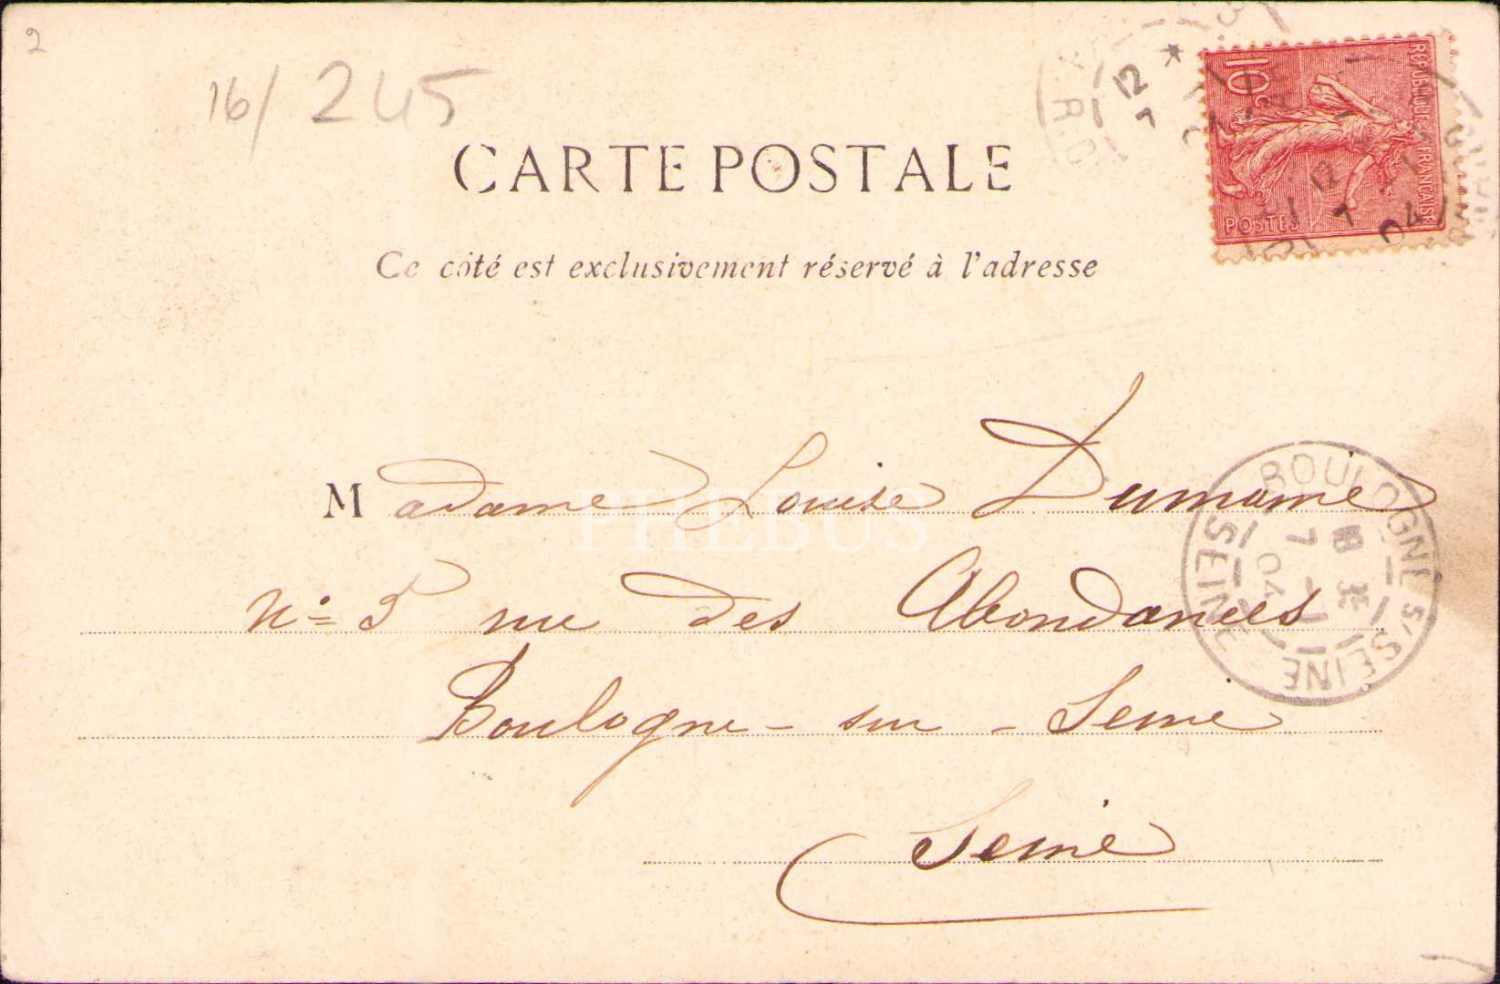 2
16/ 245
CARTE POSTALE
Ce côté est exclusivement réservé à l'adresse
10c
REPUBLIQUE FRANÇAISE
POSTES
12
7
12
7
04
Madame Louise Dumaine
N° 5 rue des Abondances
Boulogne - sur - Seine
Seine
BOULOGNE S/SEINE
SEINE
7 - 1
04
PHEBUS